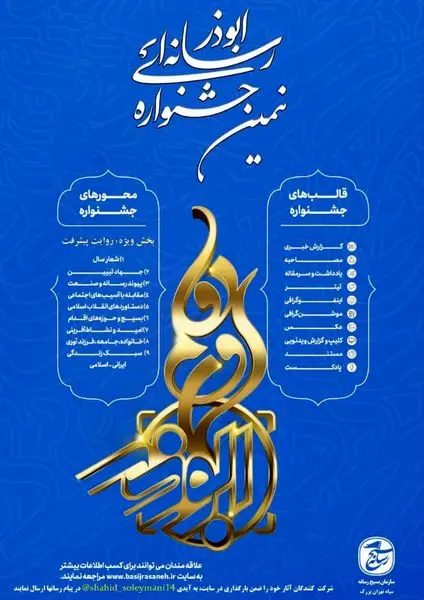 نهمین جشنواره
رسانه‌ای
ابوذر
قالب‌های
جشنواره
گزارش خبری
مصاحبه
یادداشت و سرمقاله
تیتر
اینفوگرافی
موشن‌گرافی
عکس
کلیپ و گزارش ویدئویی
مستند
پادکست
محورهای
جشنواره
بخش ویژه: روایت پیشرفت
۱) شعار سال
۲) جهاد تبیین
۳) پیوند رسانه و صنعت
۴) مقابله با آسیب‌های اجتماعی
۵) دستاوردهای انقلاب اسلامی
۶) بسیج و حوزه‌های اقدام
۷) امید و نشاط‌آفرینی
۸) خانواده،جامعه،فرزندآوری
۹) سبک زندگی
ایرانی-اسلامی
ابوذر
علاقه مندان می توانند برای کسب اطلاعات بیشتر
به سایت www.basijrasaneh.ir مراجعه نمایند.
شرکت کنندگان آثار خود را ضمن بارگذاری در سایت، به آیدی @shahid_soleymani14 در پیام رسانها ارسال نمایند
سازمان بسیج رسانه
سپاه تهران بزرگ